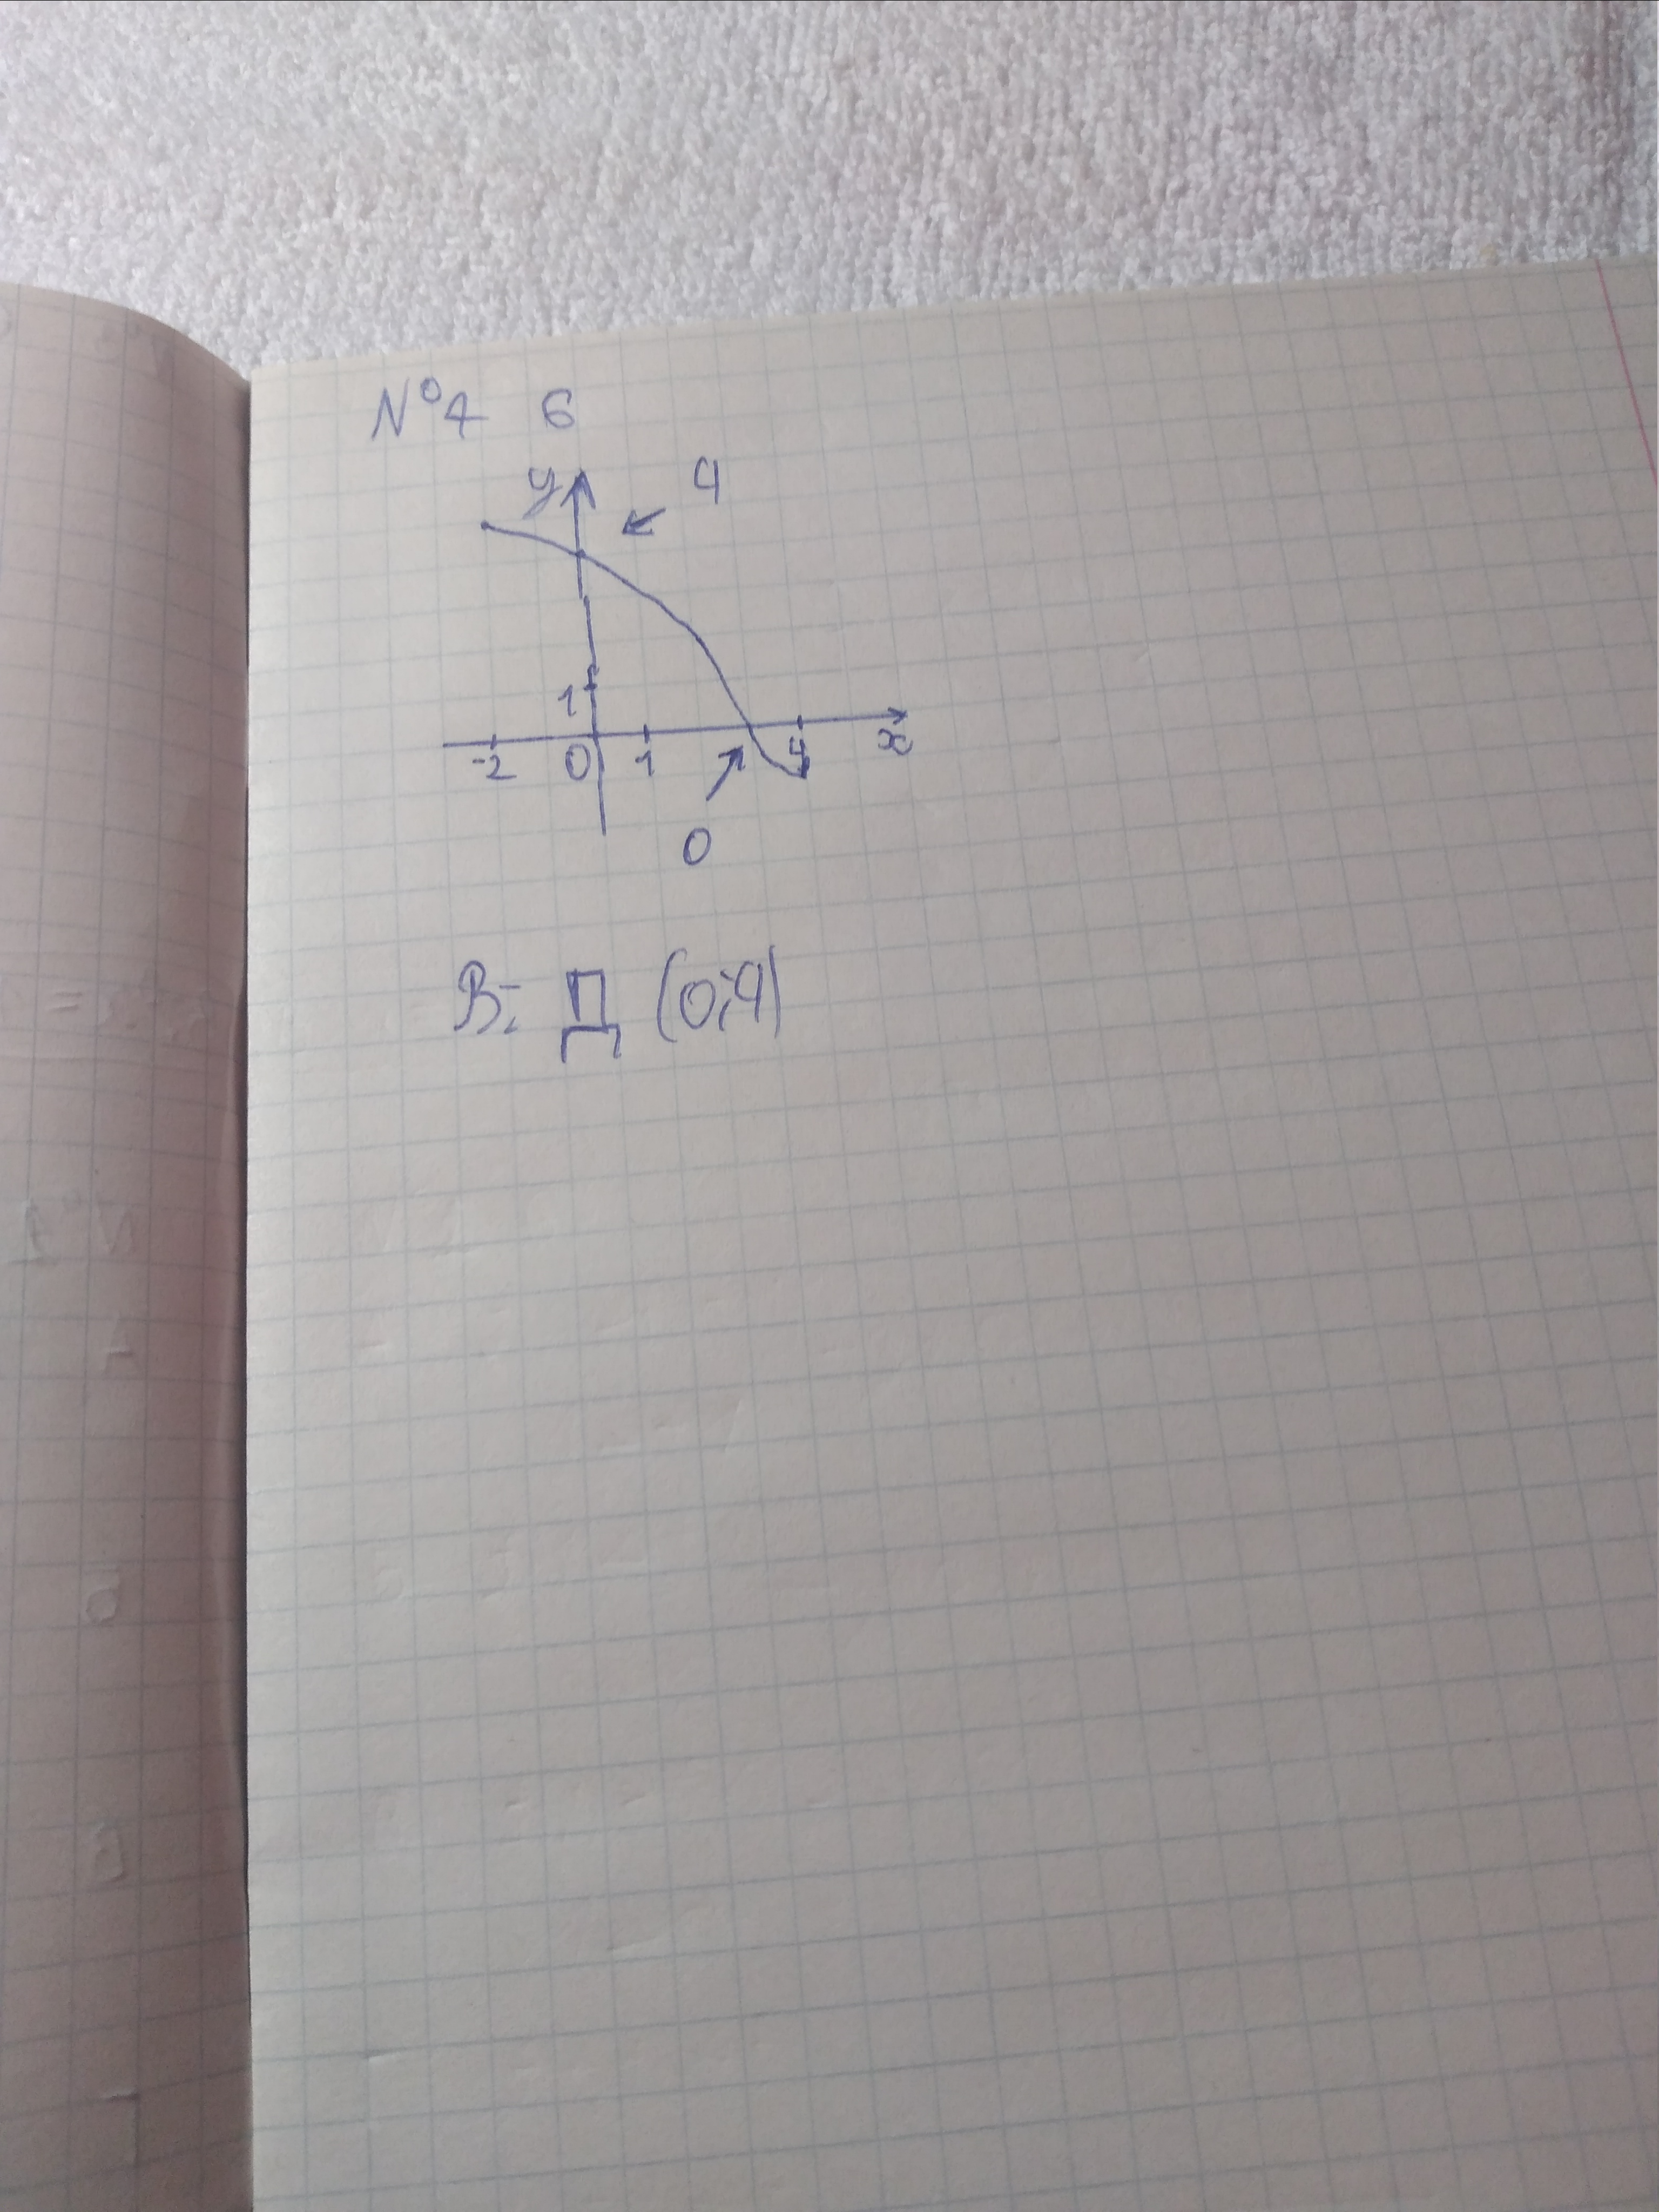 №4 6
y 4
1
-2 0 1 4 x
0
В: Д (0;4)